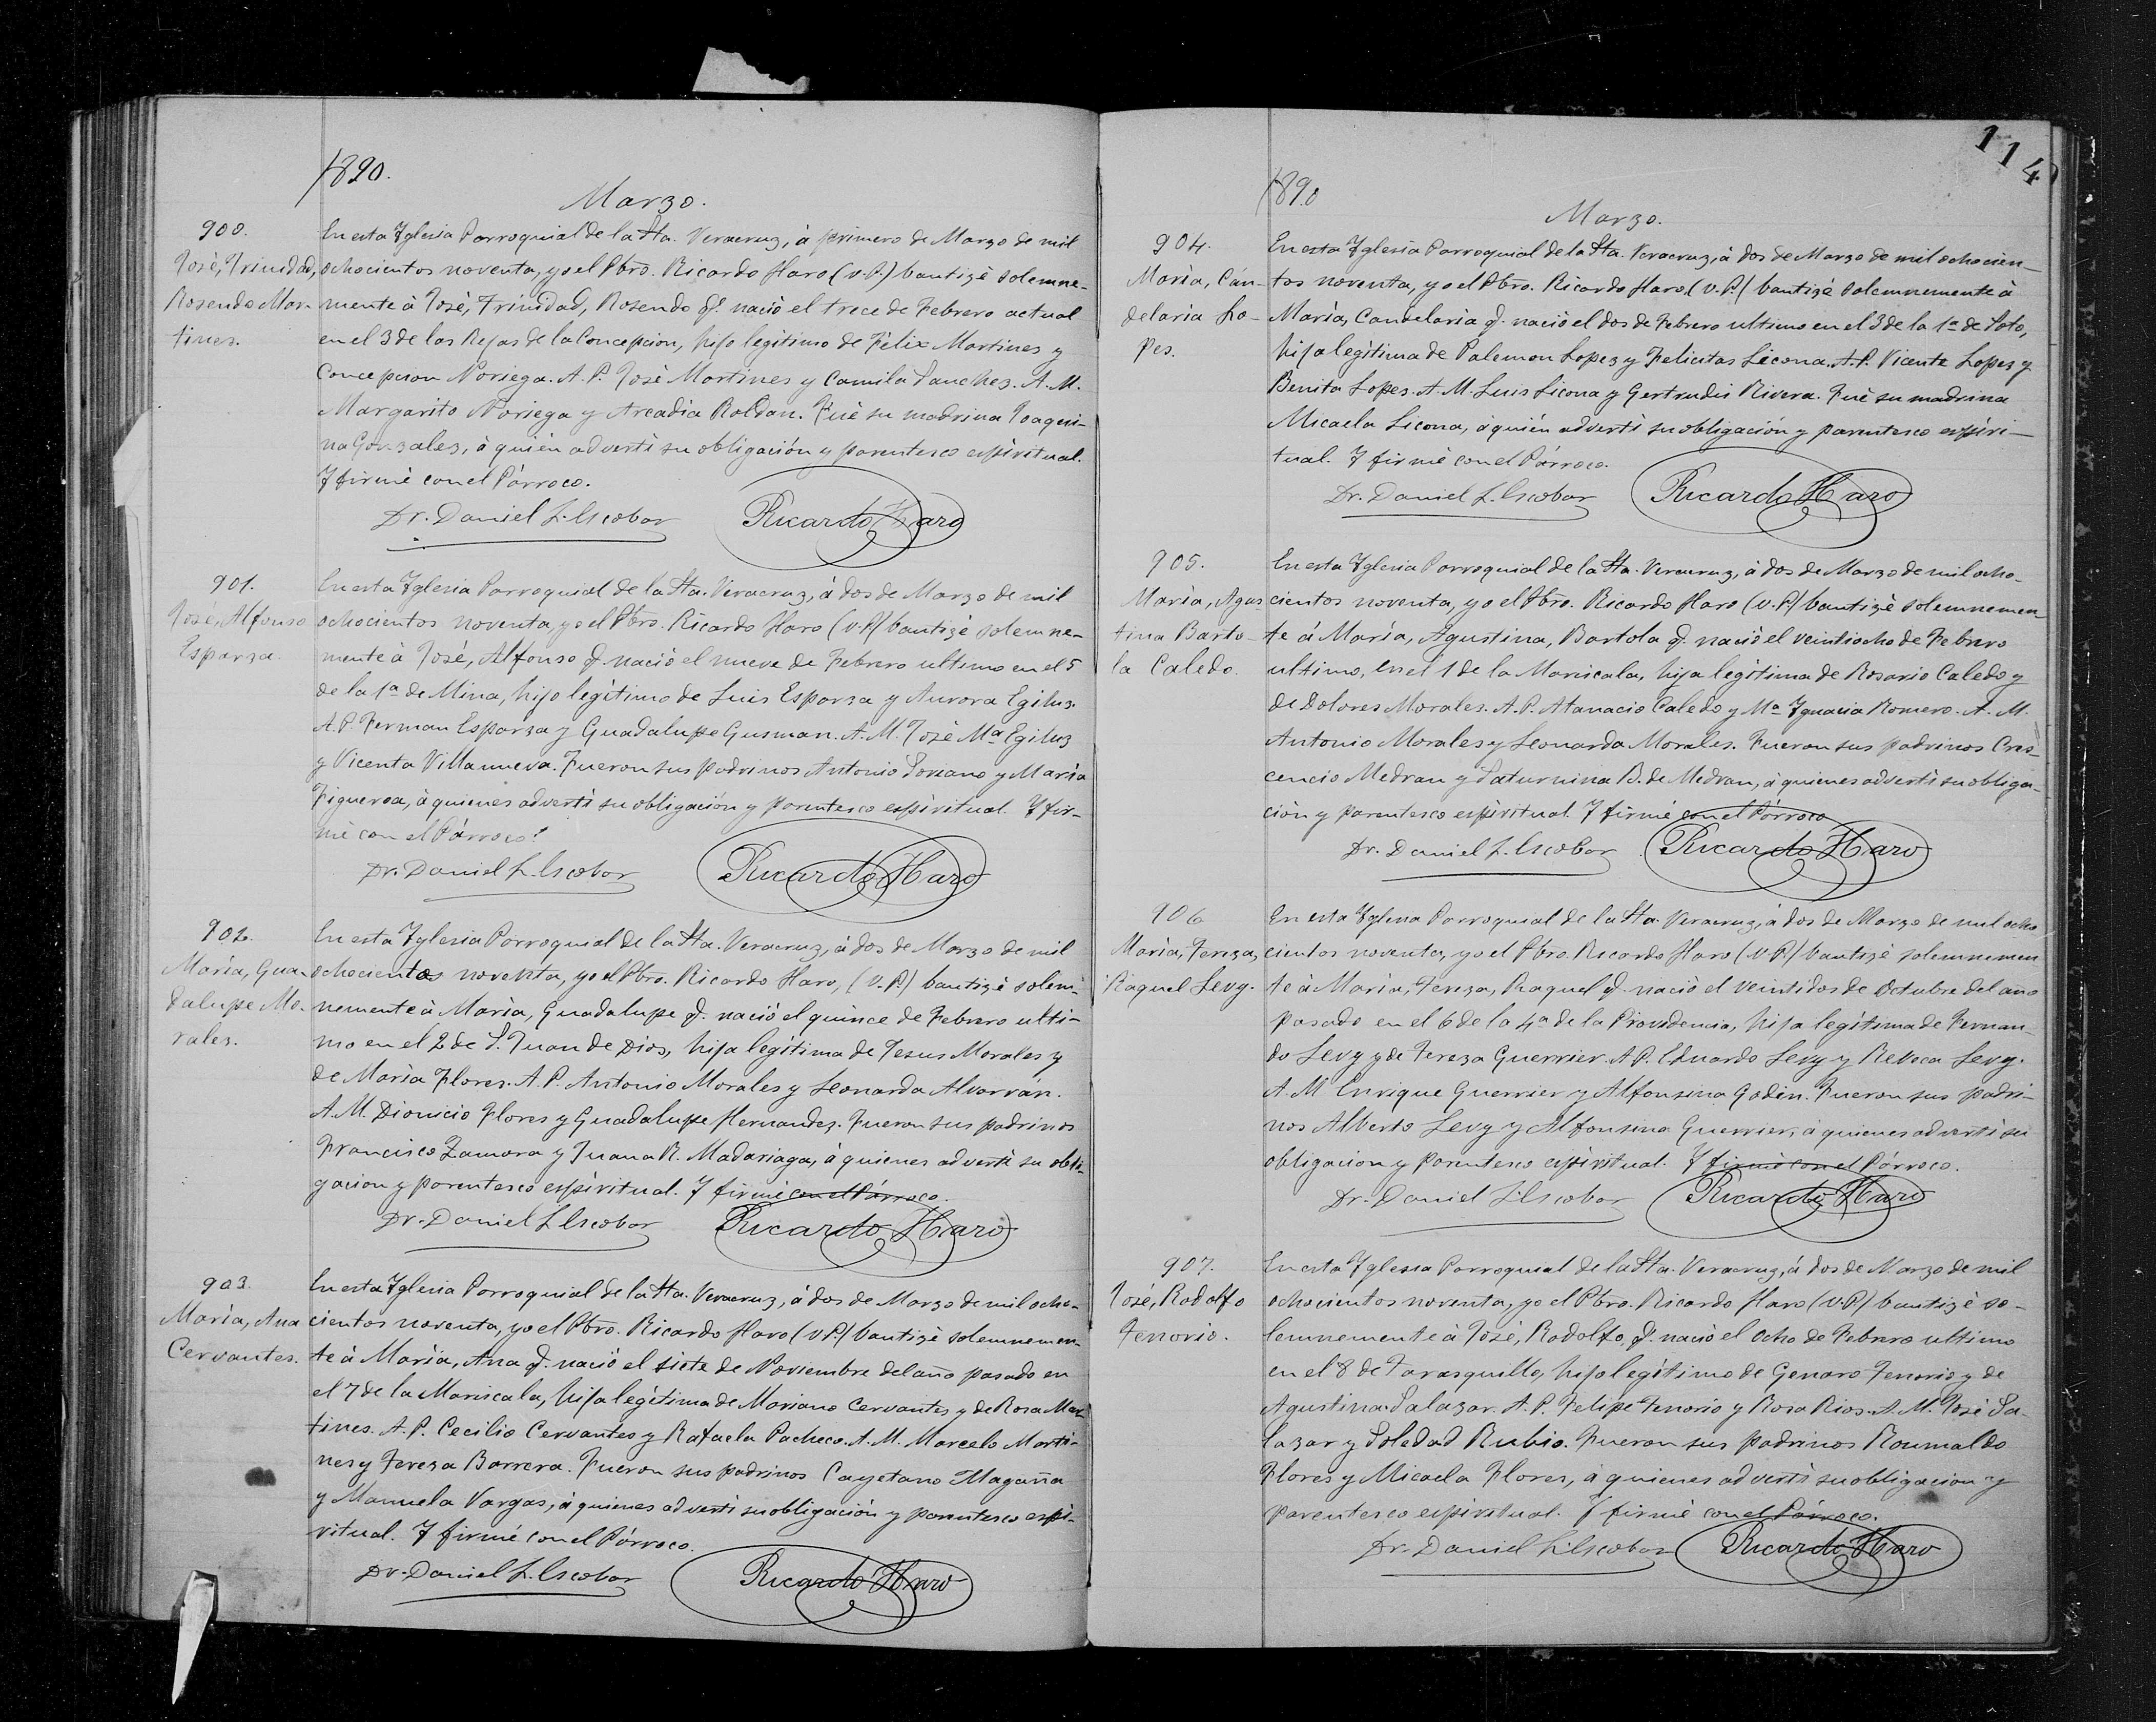 1890.
Marzo.
900.
José, Trinidad,
Rosendo Mar-
tines.
En esta Yglesia Parroquial de la Sta. Veracruz, à primero de Marzo de mil
ochocientos noventa, yo el Pbro. Ricardo Haro (V.P.) bautizé solemne-
mente à José, Trinidad, Rosendo q. nació el trece de Febrero actual
en el 3 de las Rejas de la Concepcion, hijo legitimo de Félix Martines y
Concepcion Noriega. A. P. José Martines y Camila Sanches. A. M.
Margarito Noriega y Arcadia Roldan. Fué su madrina Joaqui-
na Gonzales, à quién advertì su obligación y parentesco espiritual.
Y firmé con el Párroco.
Dr. Daniel L. Escobar Ricardo Haro
901.
José, Alfonso
Esparza.
En esta Yglesia Parroquial de la Sta. Veracruz, á dos de Marzo de mil
ochocientos noventa, yo el Pbro. Ricardo Haro (V.P.) bautizé solemne-
mente à José, Alfonso q. nació el nueve de Febrero ultimo en el 5
de la 1a de Mina, hijo legítimo de Luis Esparza y Aurora Egiluz.
A. P. Ferman Esparza y Guadalupe Gusman. A. M. José Ma Egiluz
y Vicenta Villanueva. Fueron sus padrinos Antonio Soriano y María
Figueroa, à quienes advertì su obligación y parentesco espiritual. Y fir-
mé con el Párroco.
Dr. Daniel L. Escobar Ricardo Haro
902.
María, Gua-
dalupe Mo-
rales.
En esta Yglesia Parroquial de la Sta. Veracruz, á dos de Marzo de mil
ochocientos noventa, yo el Pbro. Ricardo Haro, (V.P.) bautizé solem-
nemente à María, Guadalupe q. nació el quince de Febrero ulti-
mo en el 2 de S. Juan de Dios, hija legítima de Jesus Morales y
de María Flores. A. P. Antonio Morales y Leonarda Alvarrán.
A. M. Dionicio Flores y Guadalupe Hernandez. Fueron sus padrinos
Francisco Zamora y Juana R. Madariaga, à quienes advertì su obli-
gacion y parentesco espiritual. Y firmé con el Párroco.
Dr. Daniel L. Escobar Ricardo Haro
903.
María, Ana
Cervantes.
En esta Yglesia Parroquial de la Sta. Veracruz, á dos de Marzo de mil ocho-
cientos noventa, yo el Pbro. Ricardo Haro (V.P.) bautizé solemnemen-
te à María, Ana q. nació el siete de Noviembre del año pasado en
el 7 de la Mariscala, hija legítima de Mariano Cervantes y de Rosa Mar-
tines. A. P. Cecilio Cervantes y Rafaela Pacheco. A. M. Marcelo Marti-
nes y Tereza Barrera. Fueron sus padrinos Cayetano Magaña
y Manuela Vargas, à quienes advertì su obligación y parentesco espi-
ritual. Y firmé con el Párroco.
Dr. Daniel L. Escobar Ricardo Haro
114
1890
Marzo.
904.
María, Can-
delaria Lo-
pes.
En esta Yglesia Parroquial de la Sta. Veracruz, à dos de Marzo de mil ochocien-
tos noventa, yo el Pbro. Ricardo Haro (V.P.) bautizé solemnemente à
María, Candelaria q. nació el dos de Febrero ultimo en el 3 de la 1a de Soto,
hija legítima de Palemon Lopez y Felicitas Licona. A. P. Vicente Lopez y
Benita Lopes. A. M. Luis Licona y Gertrudis Rivera. Fué su madrina
Micaela Licona, à quién advertì su obligación y parentesco espiri-
tual. Y firmé con el Párroco.
Dr. Daniel L. Escobar Ricardo Haro
905.
María, Agus
tina Barto-
la Caledo.
En esta Yglesia Parroquial de la Sta. Veracruz, à dos de Marzo de mil ocho-
cientos noventa, yo el Pbro. Ricardo Haro (V.P.) bautizé solemnemen-
te á María, Agustina, Bartola q. nació el veintiocho de Febrero
ultimo, en el 1 de la Mariscala, hija legítima de Rosario Caledo y
de Dolores Morales. A. P. Atanacio Caledo y Ma Ygnacia Romero. A. M.
Antonio Morales y Leonarda Morales. Fueron sus padrinos Cres-
cencio Medran y Saturnina B. de Medran, à quienes advertì su obliga-
ción y parentesco espiritual. Y firmé con el Párroco
Dr. Daniel L. Escobar Ricardo Haro
906
María, Tereza,
Raquel Levy.
En esta Yglesia Parroquial de la Sta. Veracruz, á dos de Marzo de mil ocho
cientos noventa, yo el Pbro. Ricardo Haro (V.P.) bautizé solemnemen
te à María, Tereza, Raquel q. nació el veintidos de Octubre del año
pasado en el 6 de la 4a de la Providencia, hija legítima de Fernan-
do Levy y de Tereza Guerrier. A. P. Eduardo Levy y Rebeca Levy.
A. M. Enrique Guerrier y Alfonsina Godin. Fueron sus padri-
nos Alberto Levy y Alfonsina Guerrier, à quienes advertì su
obligacion y parentesco espiritual. Y firmé con el Párroco.
Dr. Daniel L. Escobar Ricardo Haro
907.
José, Rodolfo
Tenorio.
En esta Yglesia Parroquial de la Sta. Veracruz, á dos de Marzo de mil
ochocientos noventa, yo el Pbro. Ricardo Haro (V.P.) bautizé so-
lemnemente à José, Rodolfo, q. nació el ocho de Febrero ultimo
en el 8 de Tarasquillo, hijo legítimo de Genaro Tenorio y de
Agustina Salazar. A. P. Felipe Tenorio y Rosa Rios. A. M. José Sa-
lazar y Soledad Rubio. Fueron sus padrinos Roumaldo
Flores y Micaela Flores, à quienes advertì su obligacion y
parentesco espiritual. Y firmé con el Párroco.
Dr. Daniel L. Escobar Ricardo Haro